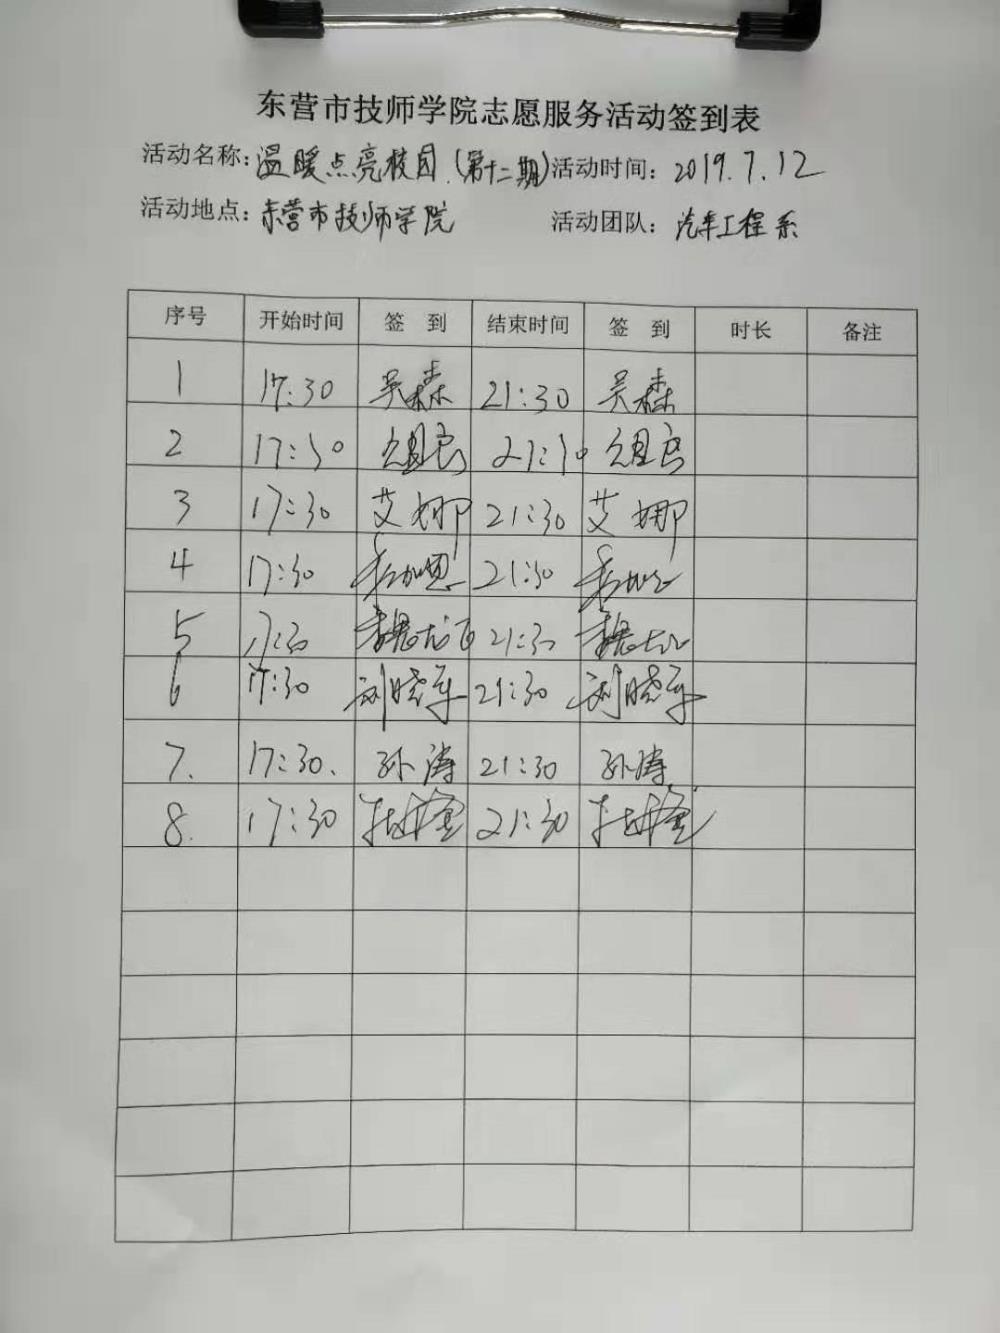 东营市技师学院志愿服务活动签到表
活动名称：温暖点亮校园（第十二期）活动时间：2019.7.12
活动地点：东营市技师学院 活动团队：汽车工程系
序号 开始时间 签到 结束时间 签到 时长 备注
1 17:30 吴森 21:30 吴森
2 17:30 21:30
3 17:30 艾娜 21:30 艾娜
4 17:30 21:30
5 17:30 21:30
6 17:30 刘晓军 21:30 刘晓军
7. 17:30. 孙涛 21:30 孙涛
8. 17:30 21:30